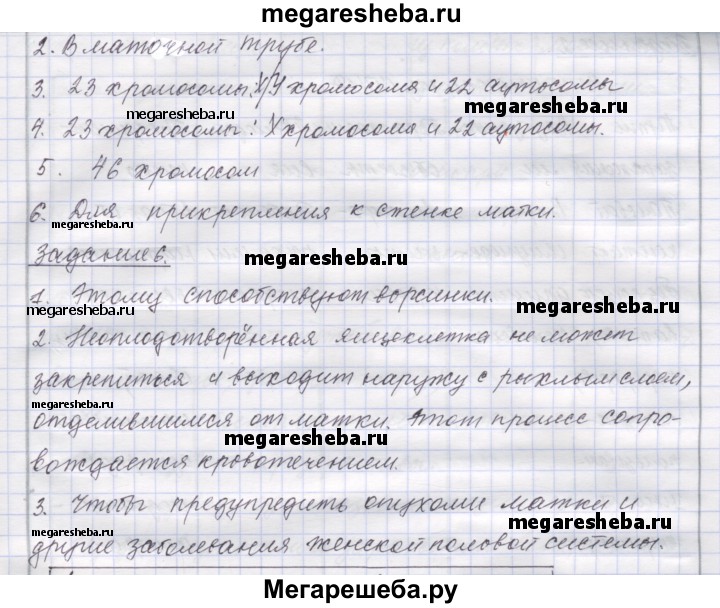 megaresheba.ru
2. В маточной трубе.
3. 23 хромосомы: X/У хромосома и 22 аутосомы
megaresheba.ru
megaresheba.ru
4. 23 хромосомы: X хромосома и 22 аутосомы.
5. 46 хромосом
6. Для прикрепления к стенке матки.
megaresheba.ru
Задание 6.
megaresheba.ru
1. Этому способствуют ворсинки.
megaresheba.ru
megaresheba.ru
2. Неоплодотворённая яйцеклетка не может
закрепиться и выходит наружу с рыхлым слоем,
megaresheba.ru
отделившимся от матки. Этот процесс сопро-
megaresheba.ru
вождается кровотечением.
3. Чтобы предупредить опухоли матки и
megaresheba.ru
megaresheba.ru
другие заболевания женской половой системы.
Мегарешеба.ру